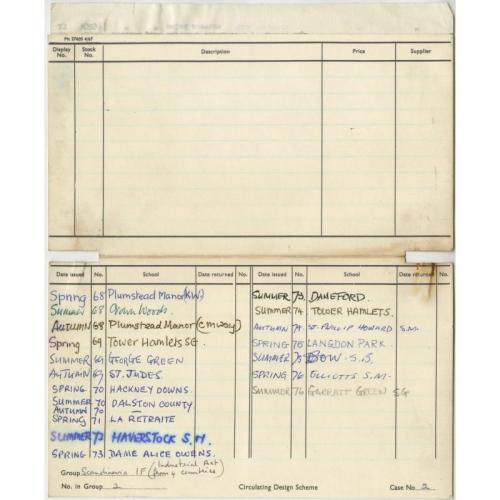 Ph 27405 4/67
Display No. Stock No. Description Price Supplier
Date issued No. School Date returned No. Date issued No. School Date returned No.
Spring 68 Plumstead Manor (KW)
Summer 68 Crown Woods
AUTUMN 68 Plumstead Manor (cmwsy)
Spring 69 Tower Hamlets SG.
SUMMER 69 GEORGE GREEN
AUTUMN 69 ST. JUDES
SPRING 70 HACKNEY DOWNS
SUMMER 70 DALSTON COUNTY
AUTUMN 70
SPRING 71 LA RETRAITE
SUMMER 72 HAVERSTOCK S.M.
SPRING 73 DAME ALICE OWENS.
SUMMER 73. DANEFORD.
SUMMER 74. TOWER HAMLETS.
AUTUMN 74. ST. PHILIP HOWARD S.M.
SPRING 75 LANGDON PARK.
SUMMER 75 BOW S.B.
SPRING 76 ELLIOTTS S.M.
SUMMER 76 GARRATT GREEN SG
Group Scandinavia IF (Industrial Art from 4 countries)
No. in Group 2 Circulating Design Scheme Case No. 2